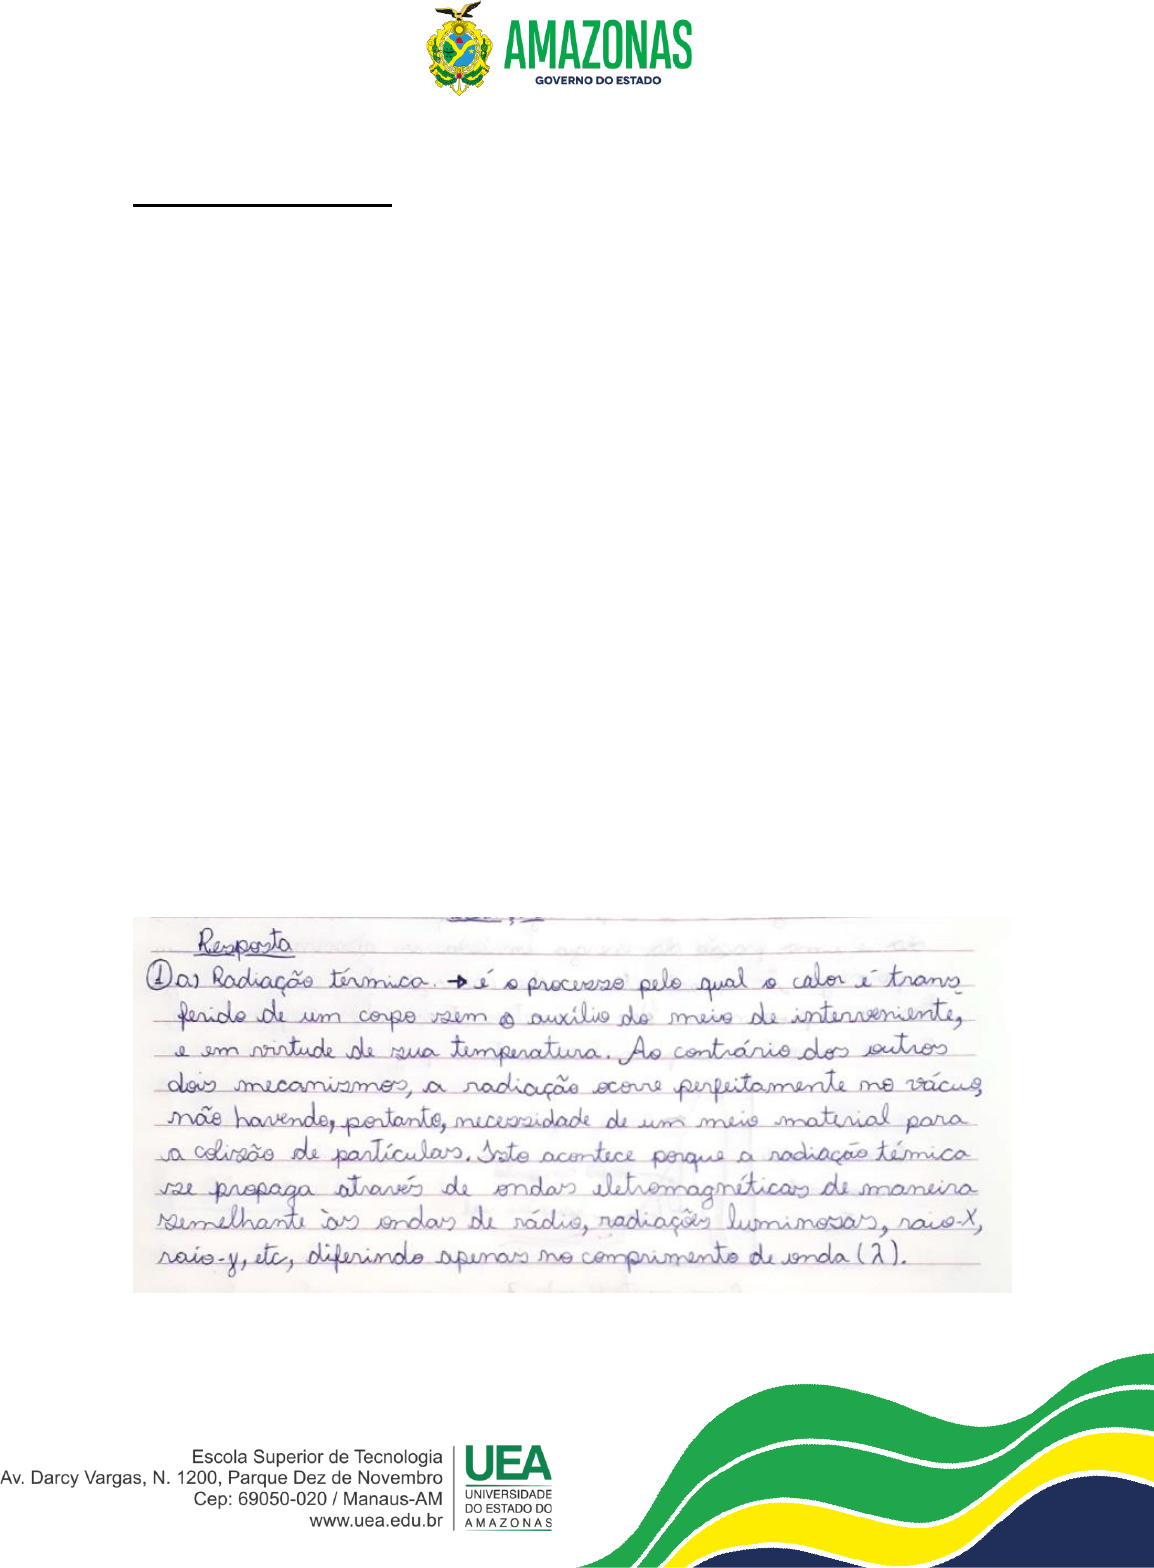 AMAZONAS
GOVERNO DO ESTADO
Resposta
① a) Radiação térmica. → é o processo pelo qual o calor é trans
ferido de um corpo sem o auxílio do meio de interveniente,
e em virtude de sua temperatura. Ao contrário dos outros
dois mecanismos, a radiação ocorre perfeitamente no vácuo,
não havendo, portanto, necessidade de um meio material para
a colisão de partículas. Isto acontece porque a radiação témica
se propaga através de ondas eletromagnéticas de maneira
semelhante às ondas de rádio, radiações luminosas, raio-X,
raio-y, etc, diferindo apenas no comprimento de onda (λ).
Escola Superior de Tecnologia
Av. Darcy Vargas, N. 1200, Parque Dez de Novembro
Cep: 69050-020 / Manaus-AM
www.uea.edu.br
UEA
UNIVERSIDADE
DO ESTADO DO
AMAZONAS